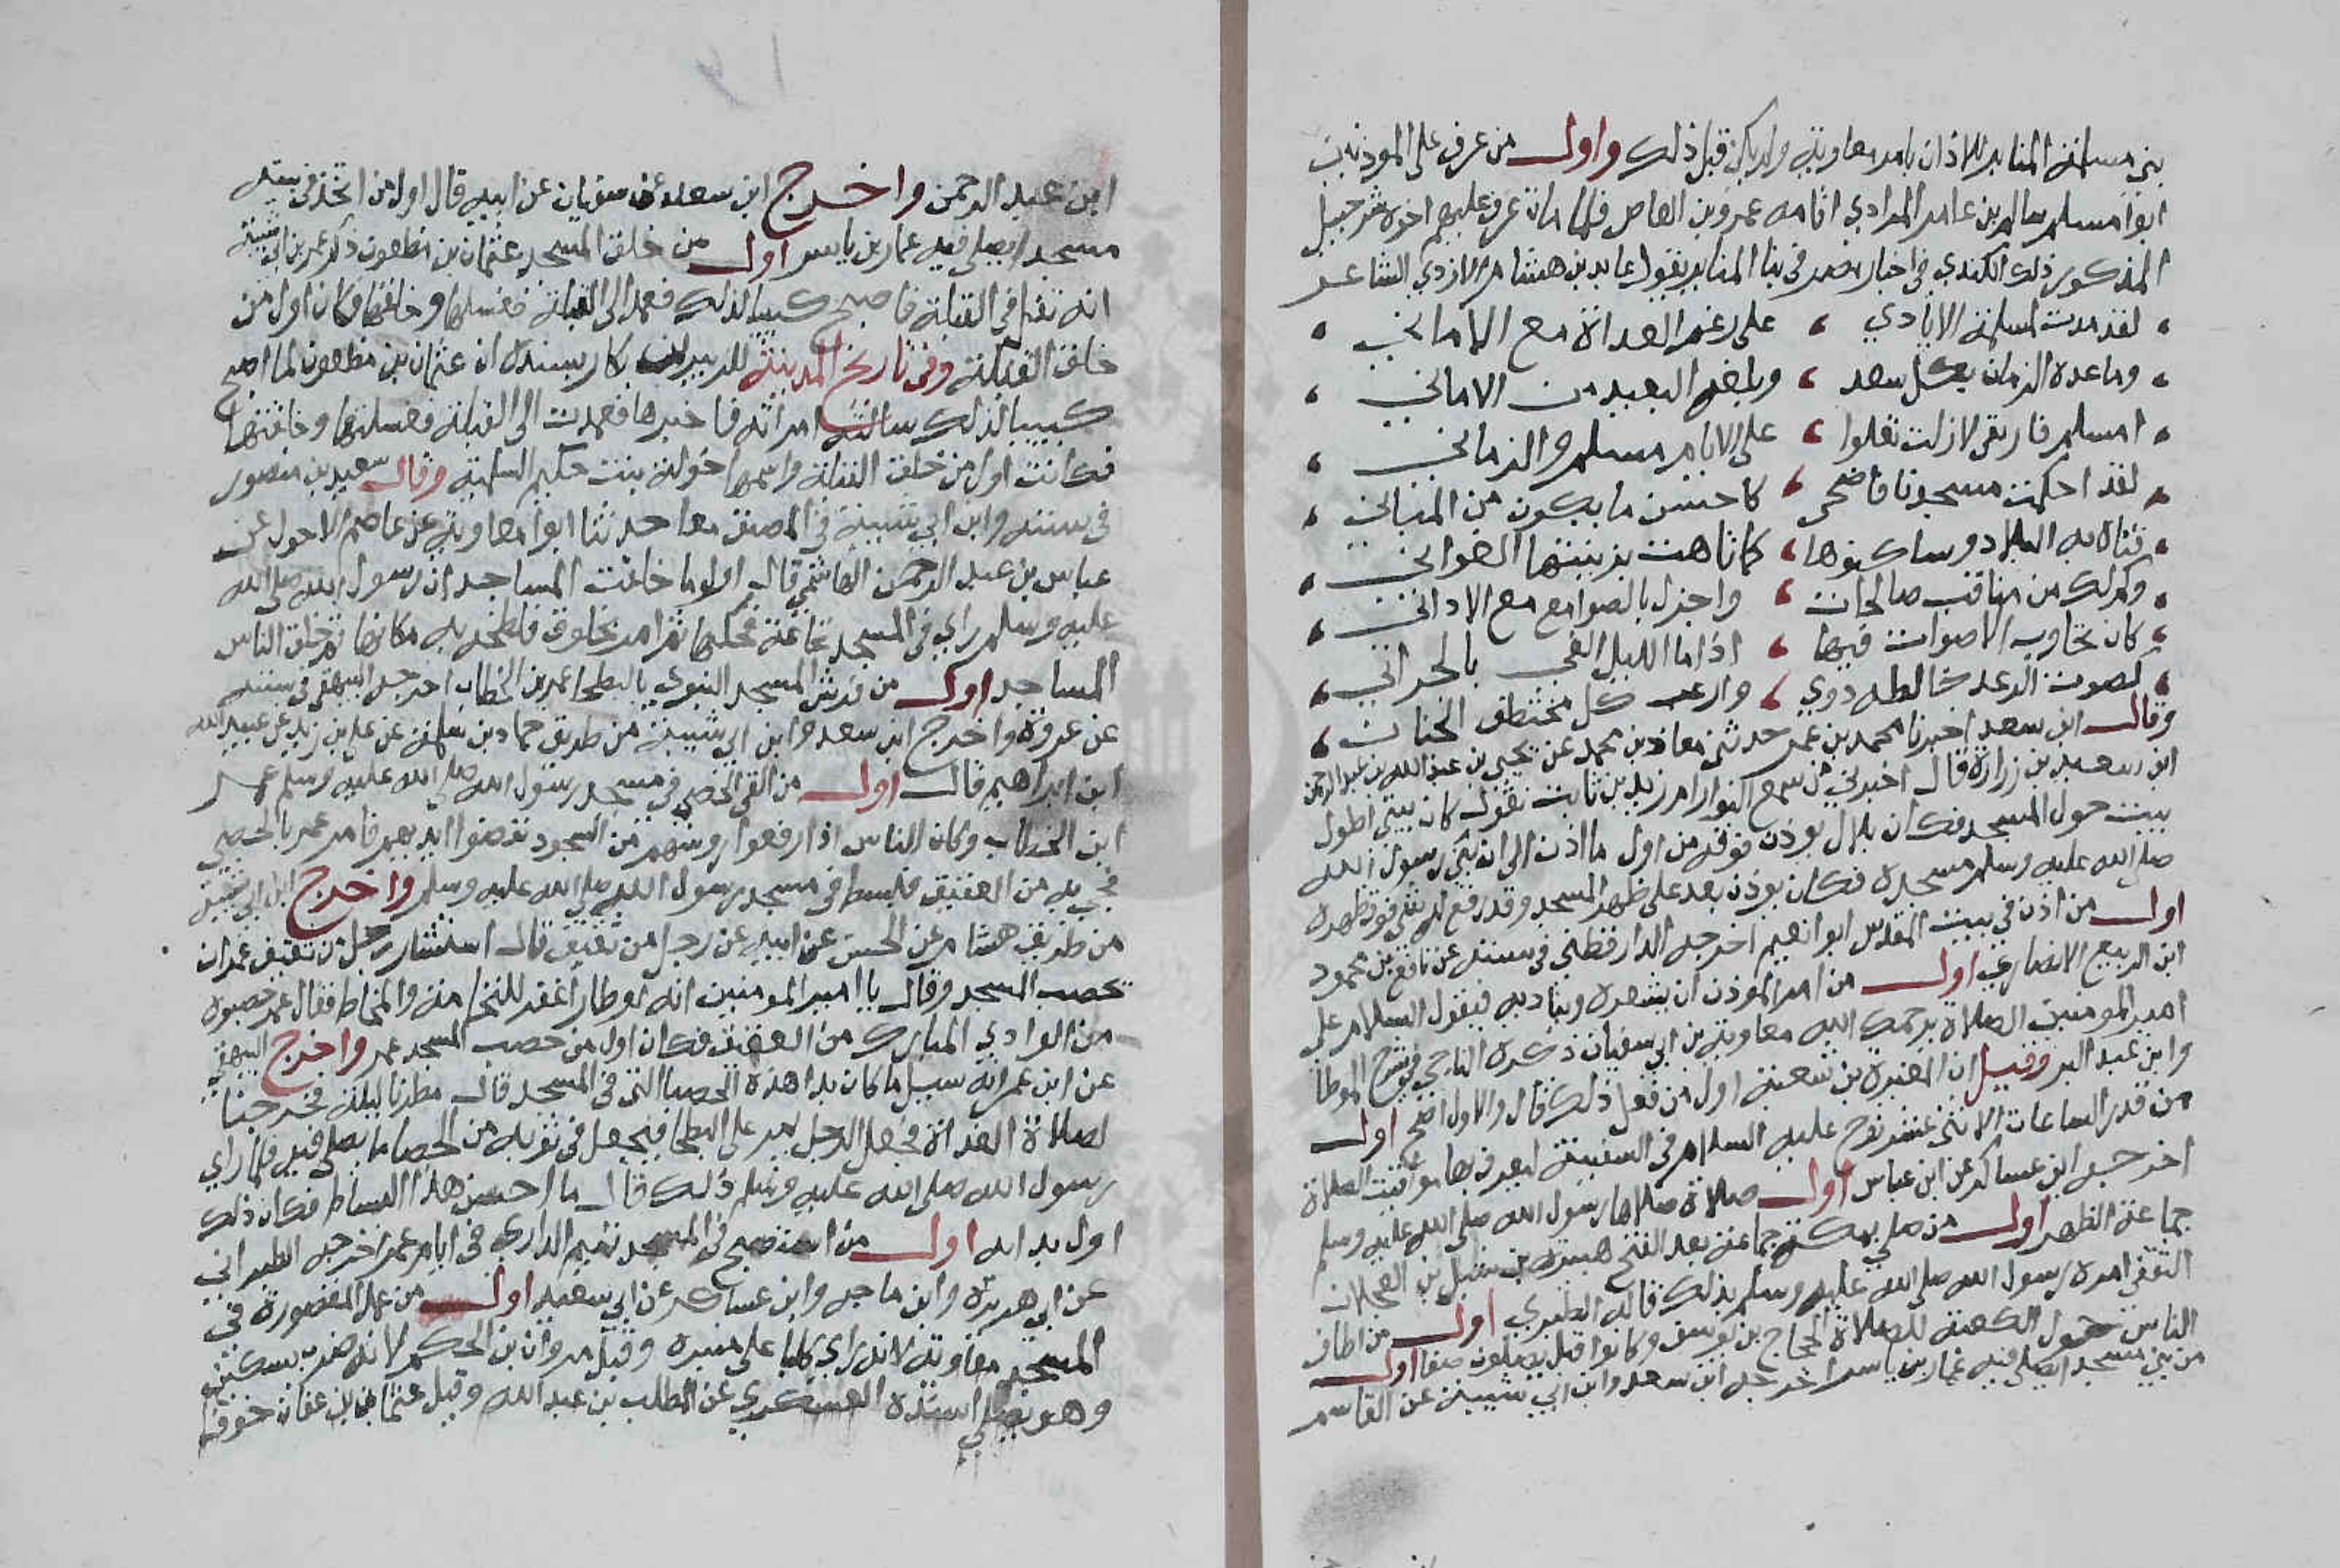 بني مسلمة المنابر للاذان بامر معاوية ولم يكن قبل ذلك واول من عرف على الموذنين
ابوا مسلم سالم بن عامر المرادي اقامه عمرو بن العاص فلما مات عرف عليهم اخوه شرحبيل
المذكور ذكر ذلك الكندي في اخبار مصر في بنا المنابر يقول عابد بن هشام الازدي الشاعر
لقد مدت لمسلمة الايادي ، على رغم العداة مع الاماني
وساعده الزمان بكل سعد ، وبلغه البعيد من الاماني
امسلم فارتقي لازلت تعلوا ، على الايام مسلم والزماني
لقد احكمت مسجدنا فاضحى ، كاحسن ما يكون من المباني
فتاه به البلاد وساكنوها ، كما تاهت بزينتها الغواني
وكم لك من مناقب صالحات ، واجزل بالصوامع مع الاداني
كان تجاوب الاصوات فيها ، اذا ما الليل القي بالجراني
كصوت الرعد خالطه دوي ، وارعب كل مختطف الجنان
وقال ابن سعد اخبرنا محمد بن عمر حدثني معاذ بن محمد عن يحيى بن عبد الله بن عبد الرحمن
ابن سعيد بن زرارة قال اخبرني من سمع النوار ام زيد بن ثابت تقول كان بيتي اطول
بيت حول المسجد فكان بلال يوذن فوقه من اول ما اذن الى ان بنى رسول الله
صلى الله عليه وسلم مسجده فكان يوذن بعد على ظهر المسجد وقد رفع له شي فوق ظهره
اول من اذن في بيت المقدس ابو انعيم اخرجه الدارقطني في سننه عن نافع بن محمود
ابن الربيع الانصاري اول من امر الموذن ان يشعره ويناديه فيقول السلام على
امير المومنين الصلاة يرحمك الله معاوية بن ابي سفيان ذكره الباجي في شرح الموطا
وابن عبد البر وقيل ان المغيرة بن شعبة اول من فعل ذلك قال والاول اصح اول
من قدر الساعات الاثني عشر نوح عليه السلام في السفينة ليعرف بها مواقيت الصلاة
اخرجه ابن عساكر عن ابن عباس اول صلاة صلاها رسول الله صلى الله عليه وسلم
جماعة الظهر اول من صلى بمكة جماعة بعد الفتح هبيرة بن شبل بن العجلان
الثقفي امره رسول الله صلى الله عليه وسلم بذلك قاله الطبري اول من اطاف
الناس حول الكعبة للصلاة الحجاج بن يوسف وكانوا قبل يصلون صفا اول
من بني مسجد ايصلي فيه عمار بن ياسر اخرجه ابن سعد وابن ابي شيبة عن القاسم
ابن عبد الرحمن واخرج ابن سعد عن سفيان عن ابيه قال اول من اتخذ في بيته
مسجدا يصلي فيه عمار بن ياسر اول من خلق المسجد عثمان بن مظعون ذكر عمر بن ابي شيبة
انه تفل في القبلة فاصبح كئيبا لذلك فعمد الى القبلة فغسلها وخلقها فكان اول من
خلق القبلة وفي تاريخ المدينة للزبير بن بكار بسنده ان عثمان بن مظعون لما اصبح
كئيبا لذلك سالته امراته فاخبرها فعمدت الى القبلة فغسلتها وخلقتها
فكانت اول من خلق القبلة واسمها خولة بنت حكيم السلمية وقال سعيد بن منصور
في سننه وابن ابي شيبة في المصنف معا حدثنا ابوا معاوية عن عاصم الاحول عن
عباس بن عبد الرحمن الهاشمي قال اول ما خلقت المساجد ان رسول الله صلى الله
عليه وسلم راي في المسجد نخاعة فحكها ثم امر بخلوق فلطخ به مكانها ثم خلق الناس
المساجد اول من فرش المسجد النبوي بالبطحا عمر بن الخطاب اخرجه البيهقي في سننه
عن عروة واخرج ابن سعد وابن ابي شيبة من طريق حماد بن سلمة عن علي بن زيد عن عبيد الله
ابن ابراهيم قال اول من القى الحصى في مسجد رسول الله صلى الله عليه وسلم عمر
ابن الخطاب وكان الناس اذا رفعوا روسهم من السجود نفضوا ايديهم فامر عمر بالحصى
فجي به من العقيق فبسط في مسجد رسول الله صلى الله عليه وسلم واخرج ابن ابي شيبة
من طريق هشام عن الحسن عن ابيه عن رجل من ثقيف قال استشار رجل من ثقيف عمر ان
تحصب المسجد وقال يا امير المومنين انه اوطا واغفر للنخامة والمخاط فقال عمر حصبوه
من الوادي المبارك من العقيق فكان اول من حصب المسجد عمر واخرج البيهقي
عن ابن عمر انه سيل ما كان بدا هذه الحصبا التي في المسجد قال مطرنا ليلة فخرجنا
لصلاة الغداة فجعل الرجل يمر على البطحا فيجعل في ثوبه من الحصبا ما يصلي فيه فلما راي
رسول الله صلى الله عليه وسلم ذلك قال ما احسن هذا البساط فكان ذلك
اول بدايه اول من استصبح في المسجد تميم الداري في ايام عمر اخرجه الطبراني
عن ابي هريرة وابن ماجه وابن عساكر عن ابي سعيد اول من عمل المقصورة في
المسجد معاوية لانه راي كلبا على منبره وقيل مروان بن الحكم لانه ضرب بسكين
وهو يصلي اسنده العسكري عن المطلب بن عبد الله وقيل عثمان بن عفان خوفا